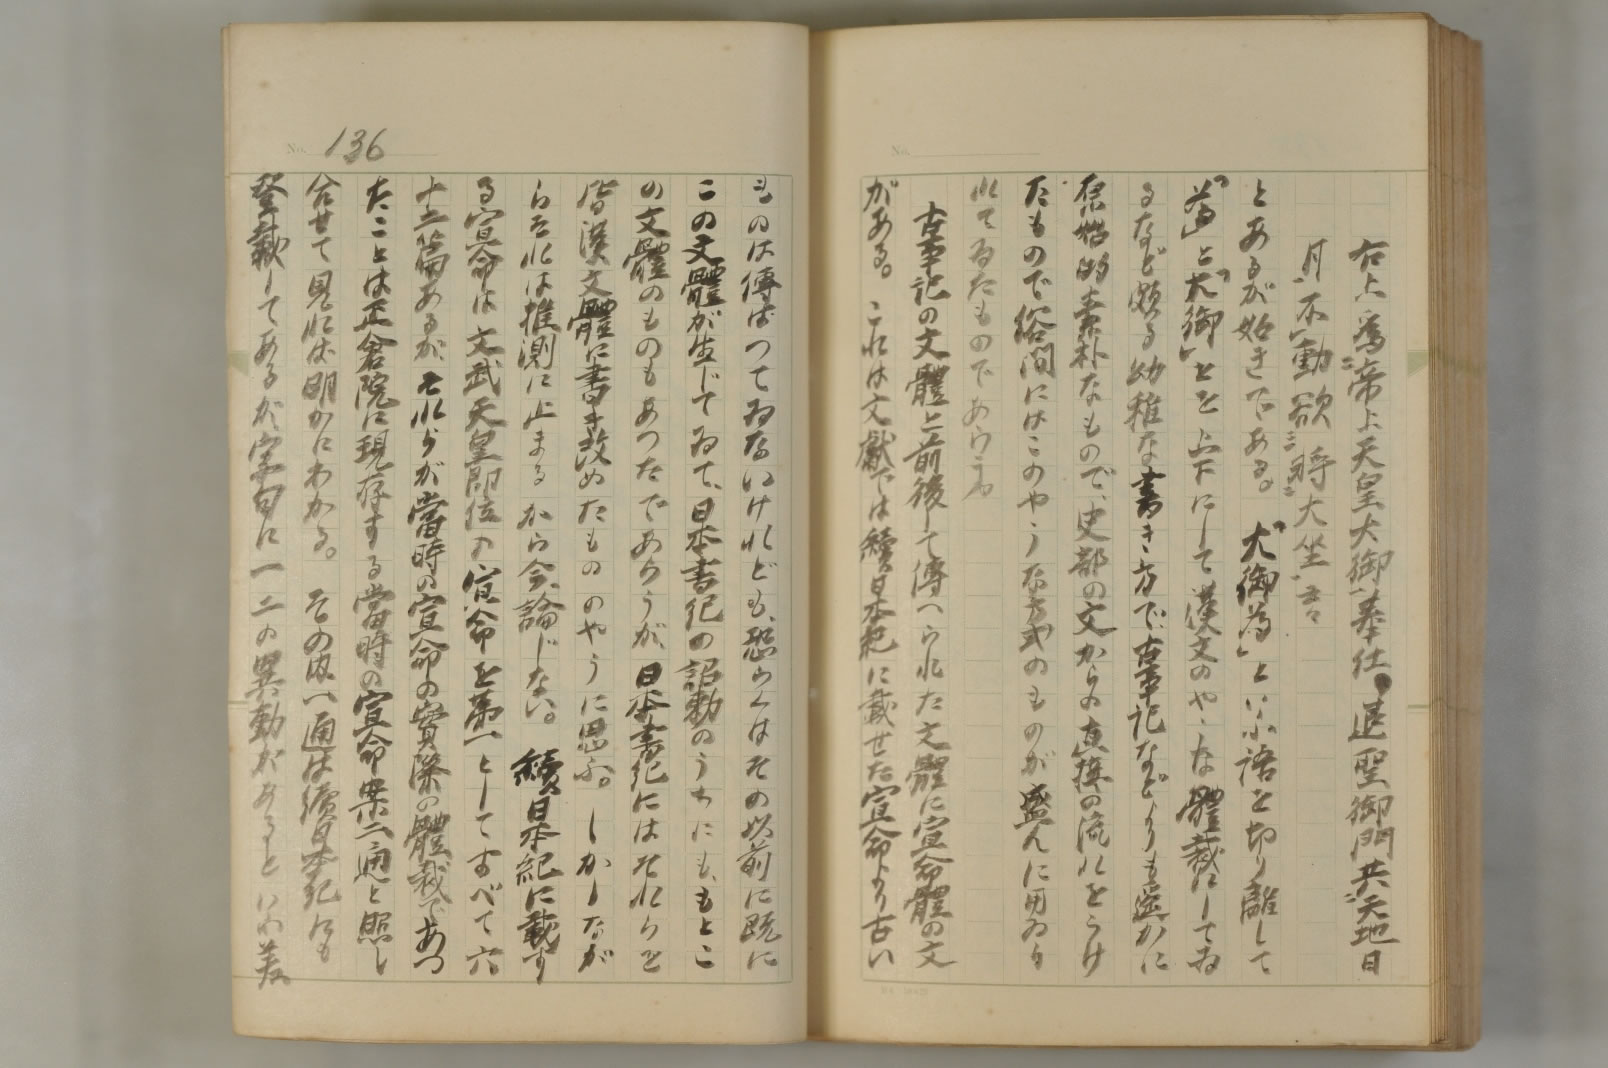 右上、爲帝上天皇大御奉仕、退聖御門共天地日
月不動欲時大坐言
とあるが如きである。「大御爲」といふ語を切り離して
「爲」と「大御」とを上下にして漢文のやうな體裁にしてゐ
るなど頗る幼稚な書き方で古事記などよりも遙かに
原始的素朴なもので、史部の文からの直接の流れをうけ
たもので俗間にはこのやうな方式のものが盛んに用ゐら
れてゐたものであらう。
古事記の文體と前後して傳へられた文體に宣命體の文
がある。これは文獻では續日本紀に載せた宣命より古い
No.
No. 136
ものは傳はつてゐないけれども、恐らくはその以前に既に
この文體が生じてゐて、日本書紀の詔勅のうちにも、もとこ
の文體のものもあつたであらうが、日本書紀にはそれらを
皆漢文體に書き改めたもののやうに思ふ。しかしなが
らそれは推測に止まるから今論じない。續日本紀に載す
る宣命は文武天皇即位の宣命を第一としてすべて六
十二篇あるが、それらが當時の宣命の實際の體裁であつ
たことは正倉院に現存する當時の宣命案二通と照し
合せて見れば明かにわかる。その内一通は續日本紀にも
登載してあるが、字句に一二の異動があるといふ差